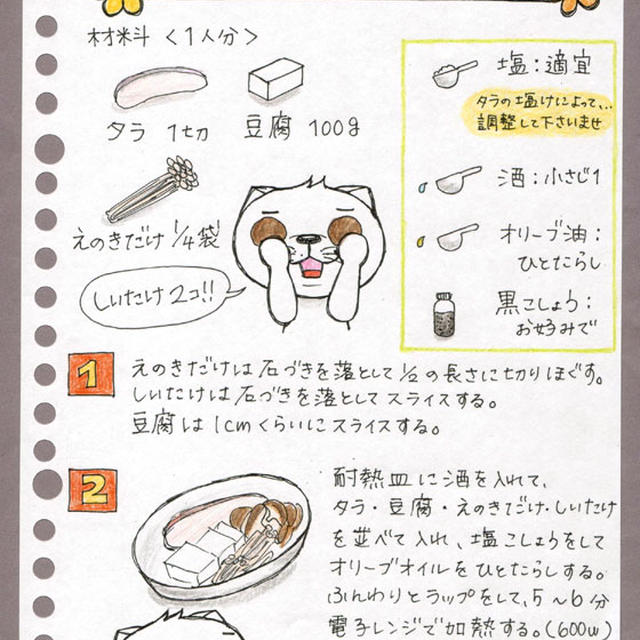 材料 〈1人分〉
タラ 1切
豆腐 100g
えのきだけ 1/4袋
しいたけ 2コ!!
塩:適宜
タラの塩けによって、…
調整して下さいませ
酒:小さじ1
オリーブ油:
ひとたらし
黒こしょう:
お好みで
1
えのきだけは石づきを落として1/2の長さに切りほぐす。
しいたけは石づきを落としてスライスする。
豆腐は1cmくらいにスライスする。
2
耐熱皿に酒を入れて、
タラ・豆腐・えのきだけ・しいたけ
を並べて入れ、塩こしょうをして
オリーブオイルをひとたらしする。
ふんわりとラップをして、5~6分
電子レンジで加熱する。(600w)